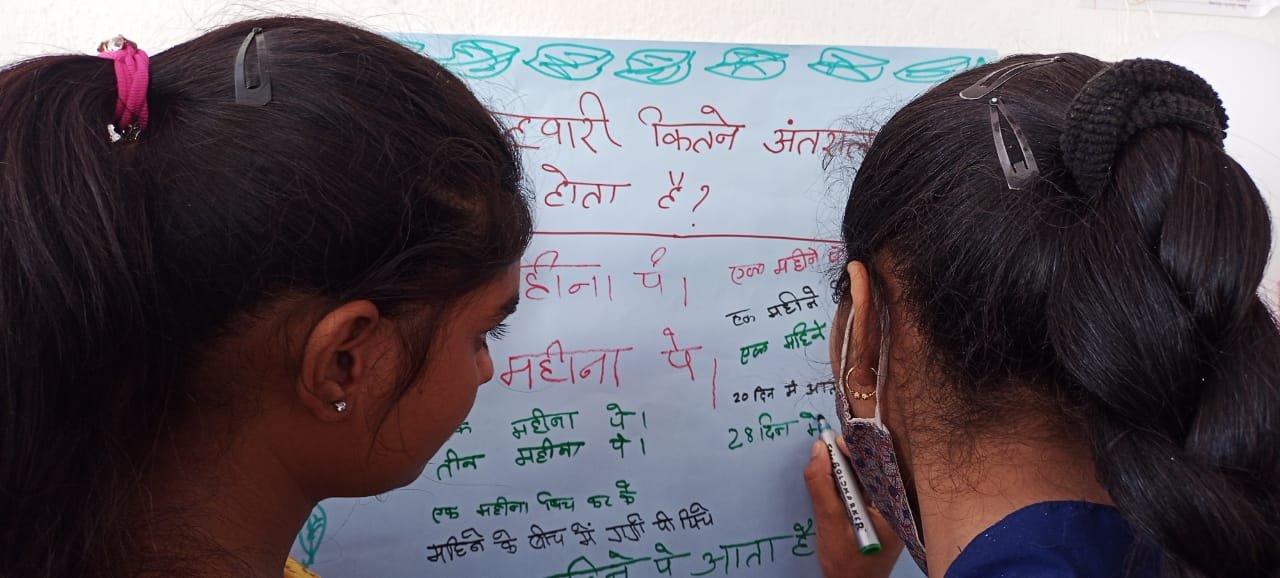 हवारी कितने अंतराल
होता है?
हीना पे।
महीना पे।
महीना पे।
तीन महीना पे।
एक महीना बिच कर के
महिने के बीच में
पे आता है
एक महीने
एक महीने
एक महिने
20 दिन में आता
28 दिना मे